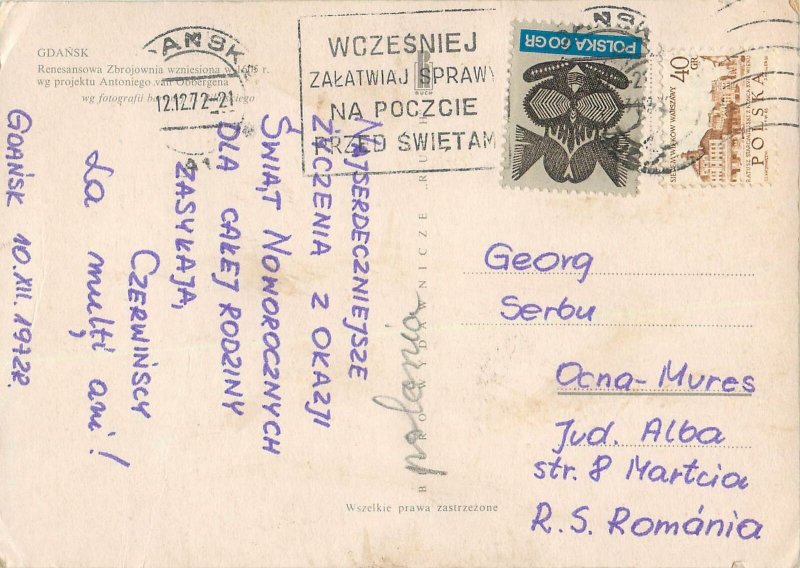 GDAŃSK
Renesansowa Zbrojownia wzniesiona w 1605 r.
wg projektu Antoniego van Obbergena
wg fotografii
AŃSK
12.12.72-21
WCZEŚNIEJ
ZAŁATWIAJ SPRAWY
NA POCZCIE
PRZED ŚWIĘTAM
POLSKA 60 GR
40 GR
POLSKA
RUCH
NAJSERDECZNIEJSZE
ŻYCZENIA Z OKAZJI
ŚWIĄT NOWOROCZNYCH
DLA CAŁEJ RODZINY
ZASYŁAJĄ,
CZERWIŃSCY
La mulţi ani!
GDAŃSK 10.XII.1972R.
polonia
BIURO WYDAWNICZE RUCH
Georg
Serbu
Ocna-Mures
Jud. Alba
str. 8 Martcia
R.S. Románia
Wszelkie prawa zastrzeżone